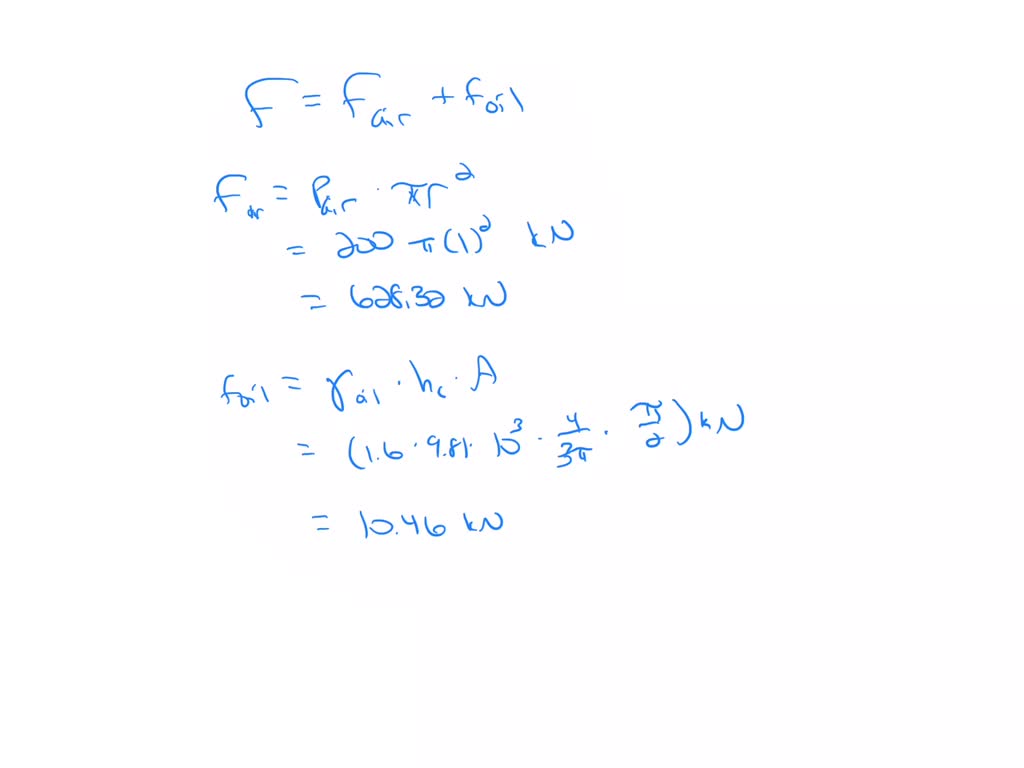 F = F_air + F_oil
F_air = P_air · πr²
= 200 π(1)² kN
= 628.32 kN
F_oil = γ_oil · h_c · A
= (1.6 · 9.81 · 10³ · 4/3π · π/2) kN
= 10.46 kN